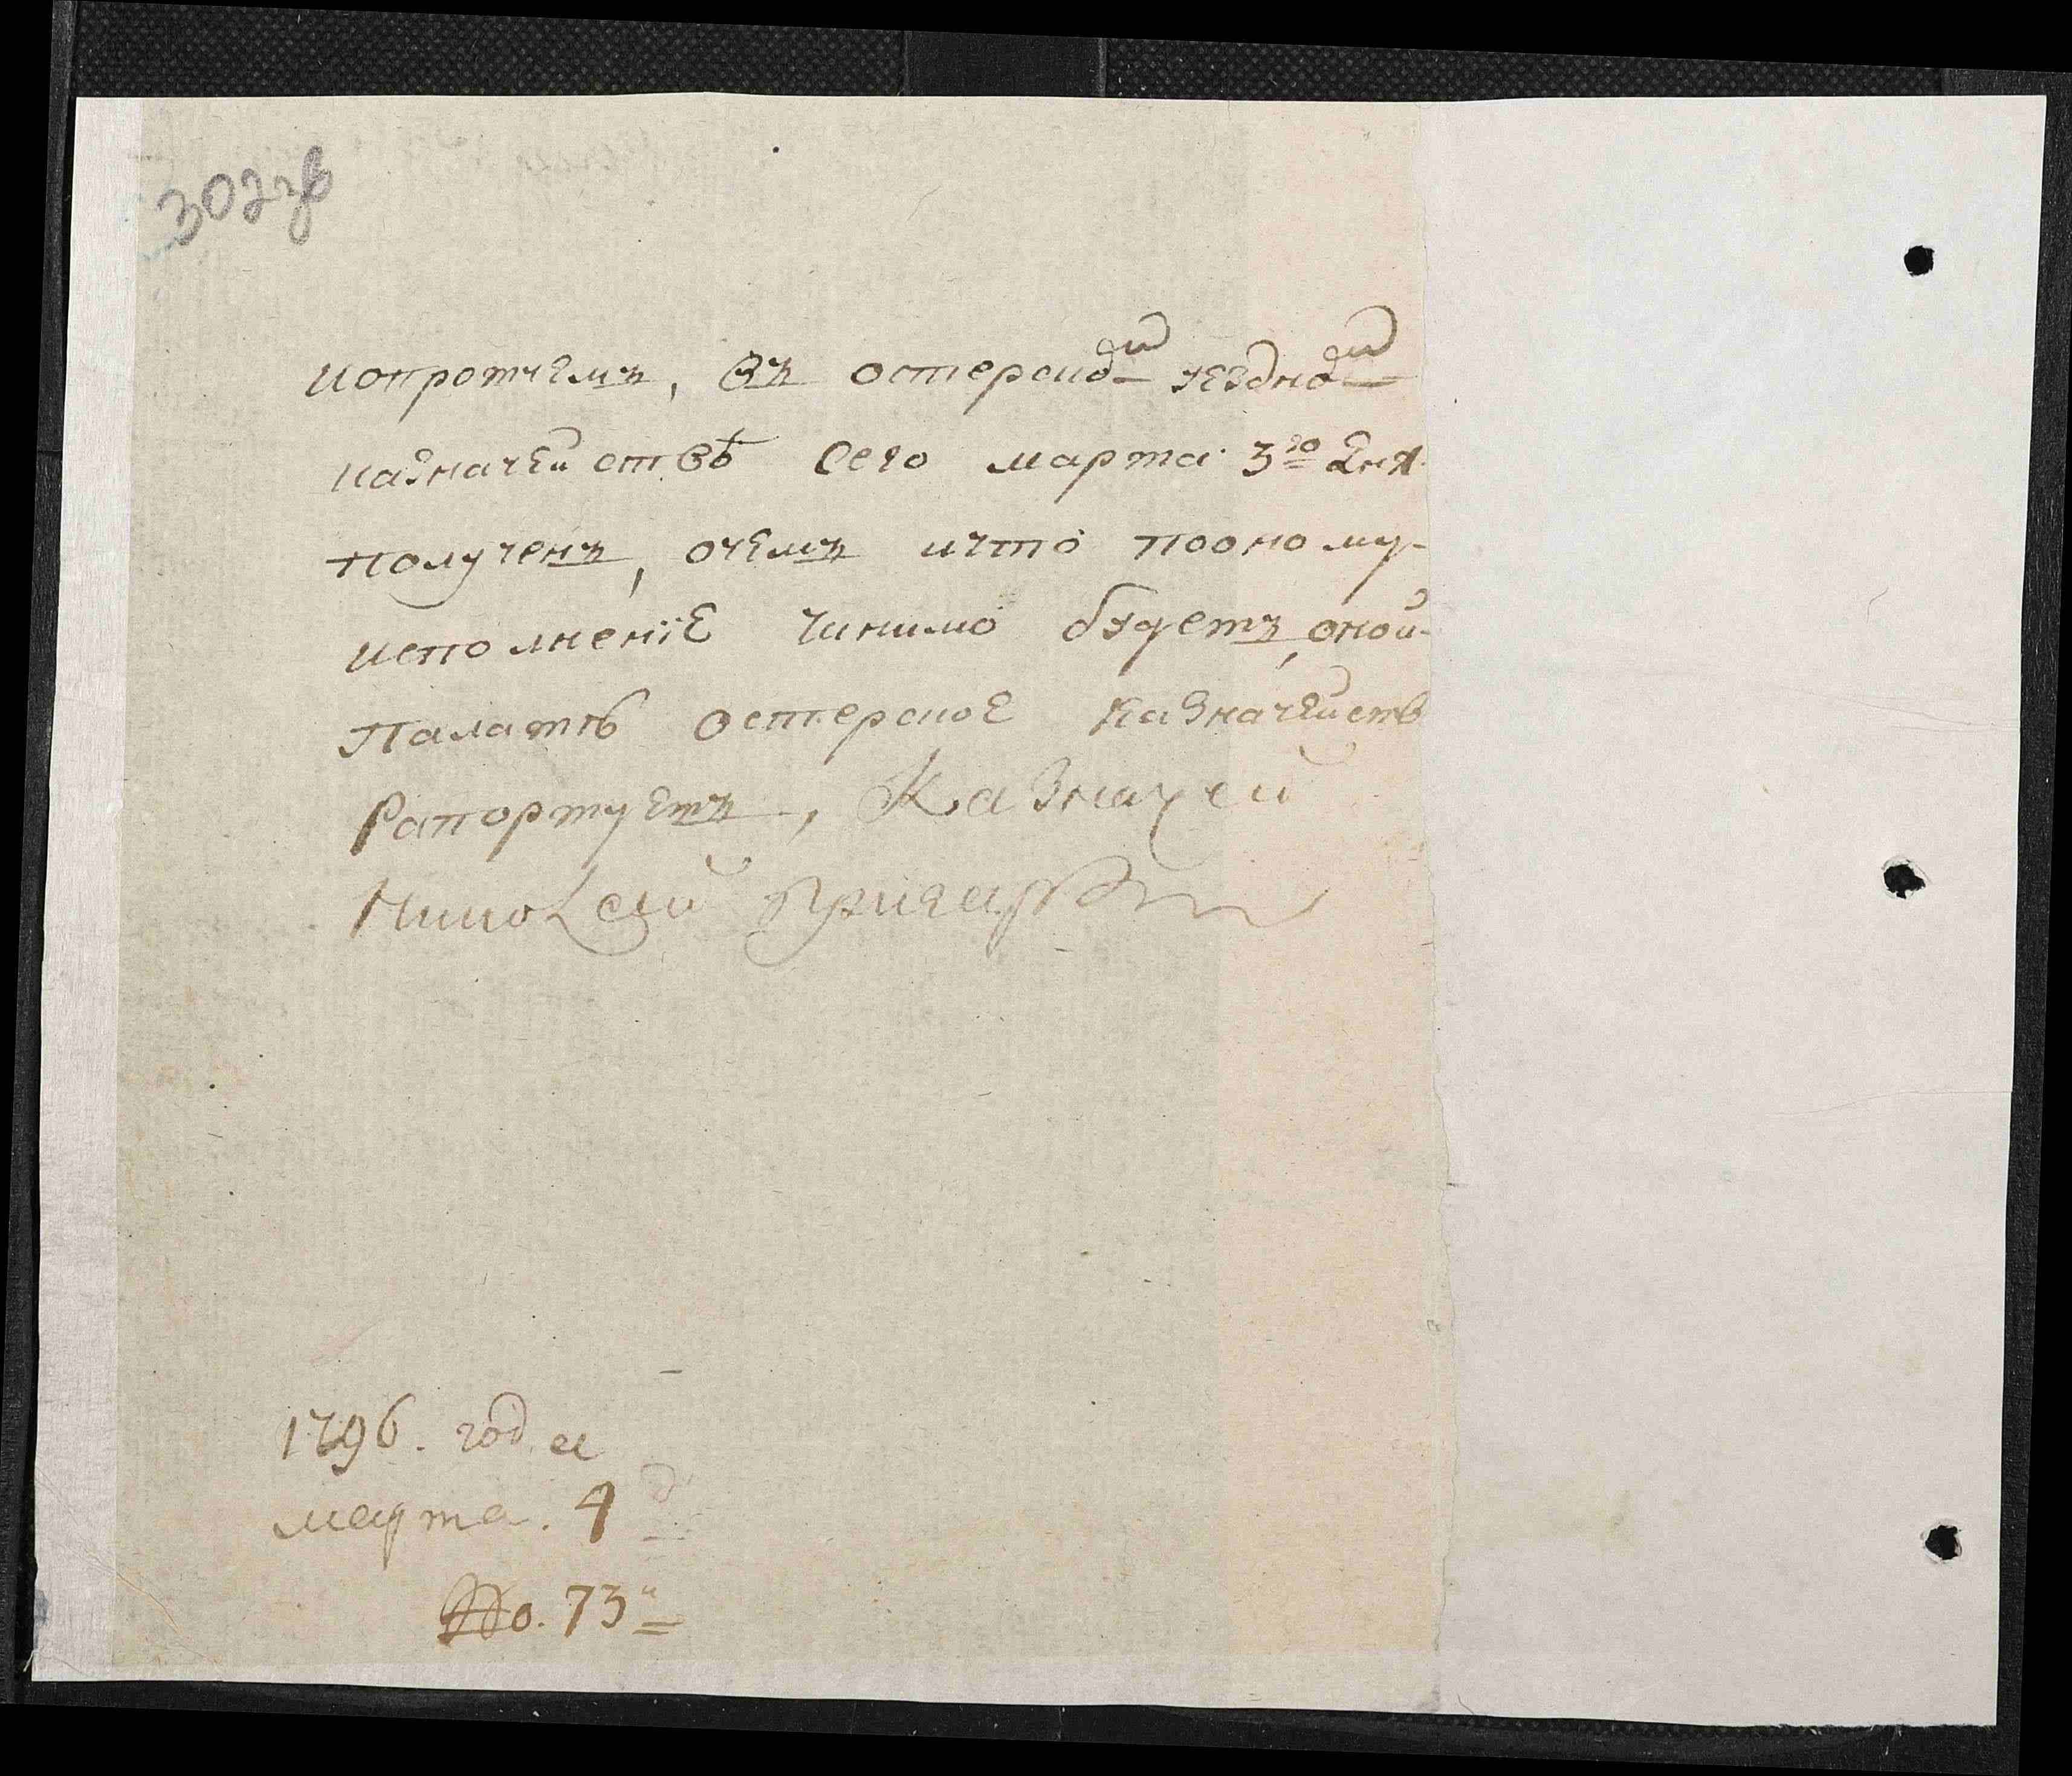 302 зв
ипротчемъ, въ остерскомъ уездномъ
казначействѣ сего марта 3го дня
полученъ, очемъ ичто поономуː
исполненїе чинимо будетъ, оной
Палатѣ остерское казначейств
рапортуетъ, Казначей
1796. года
марта. 4 д
No. 73й